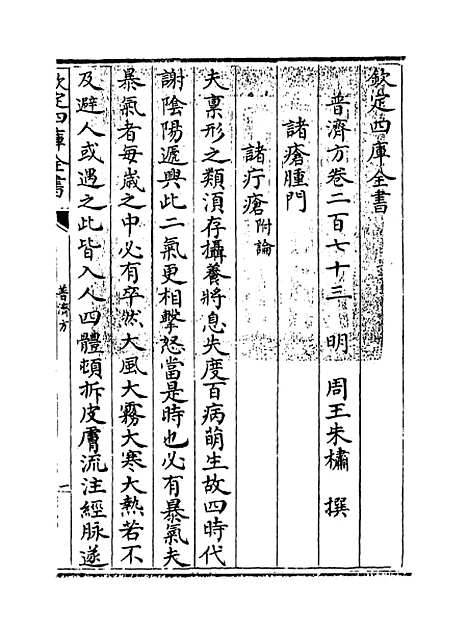 欽定四庫全書
普濟方卷二百七十三 明 周王朱橚 撰
諸瘡腫門
諸疔瘡附論
夫禀形之類湏存攝養將息失度百病萌生故四時代
謝陰陽遞興此二氣更相擊怒當是時也必有暴氣夫
暴氣者每歲之中必有卒然大風大霧大寒大熱若不
及避人或遇之此皆入人四體頓拆皮膚流注經脉遂
欽定四庫全書
普濟方
一